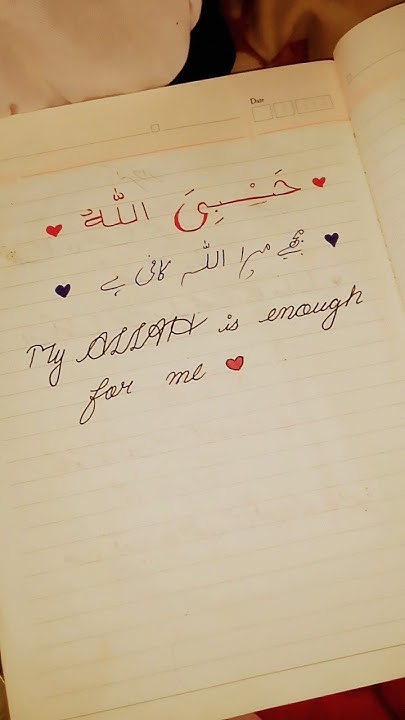 Date
حَسْبِیَ اللّٰهُ
مجھے میرا اللّٰہ کافی ہے
My ALLAH is enough
for me